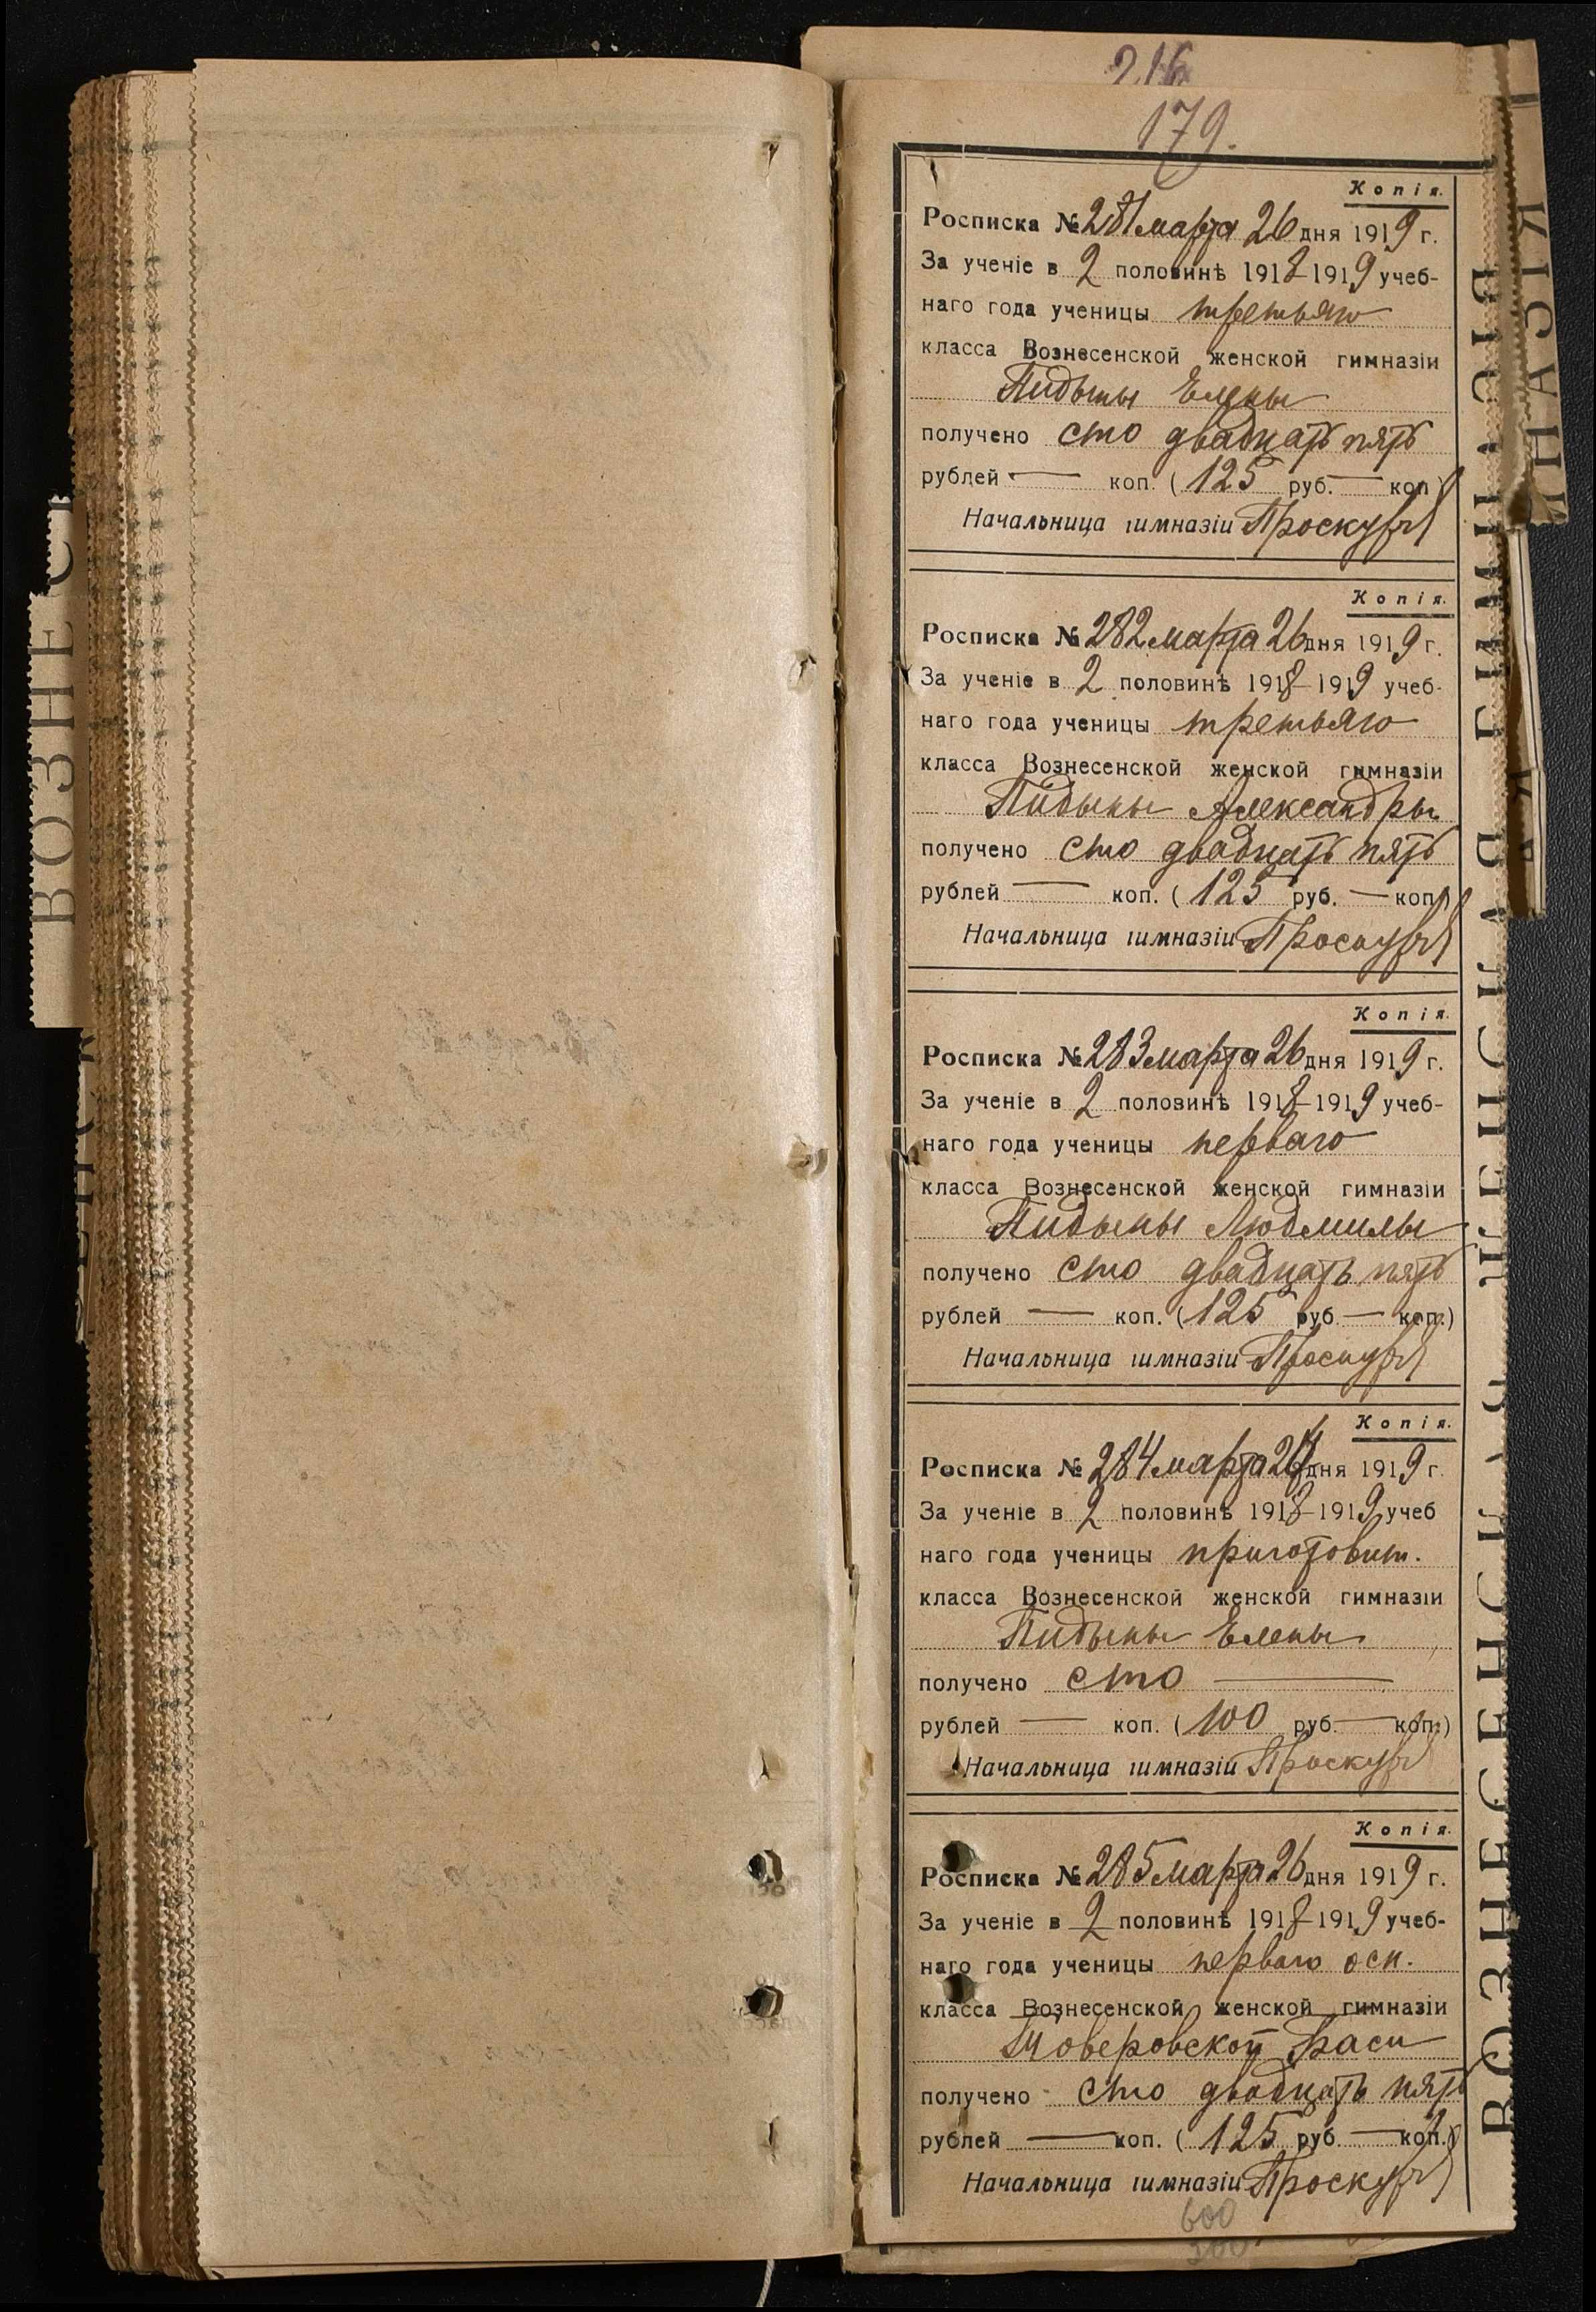 216
179.
Копія.
Росписка № 281 марта 26 дня 1919 г.
За ученіе в 2 половинѣ 1918-1919 учеб-
наго года ученицы третьяго
класса Вознесенской женской гимназіи
Пидыны Елены
получено сто двадцать пять
рублей — коп. (125 руб. — коп.)
Начальница гимназіи
Копія.
Росписка № 282 марта 26 дня 1919 г.
За ученіе в 2 половинѣ 1918-1919 учеб-
наго года ученицы третьяго
класса Вознесенской женской гимназіи
Пидыны Александры
получено сто двадцать пять
рублей — коп. (125 руб. — коп.)
Начальница гимназіи
Копія.
Росписка № 283 марта 26 дня 1919 г.
За ученіе в 2 половинѣ 1918-1919 учеб-
наго года ученицы перваго
класса Вознесенской женской гимназіи
Пидыны Людмилы
получено сто двадцать пять
рублей — коп. (125 руб. — коп.)
Начальница гимназіи
Копія.
Росписка № 284 марта дня 1919 г.
За ученіе в 2 половинѣ 1918-1919 учеб
наго года ученицы приготовит.
класса Вознесенской женской гимназіи
Пидыны Елены
получено сто —
рублей — коп. (100 руб. — коп.)
Начальница гимназіи
Копія.
Росписка № 285 марта 26 дня 1919 г.
За ученіе в 2 половинѣ 1918-1919 учеб-
наго года ученицы перваго осн.
класса Вознесенской женской гимназіи
Баси
получено сто двадцать пять
рублей — коп. (125 руб. — коп.)
Начальница гимназіи
600
ВОЗНЕС